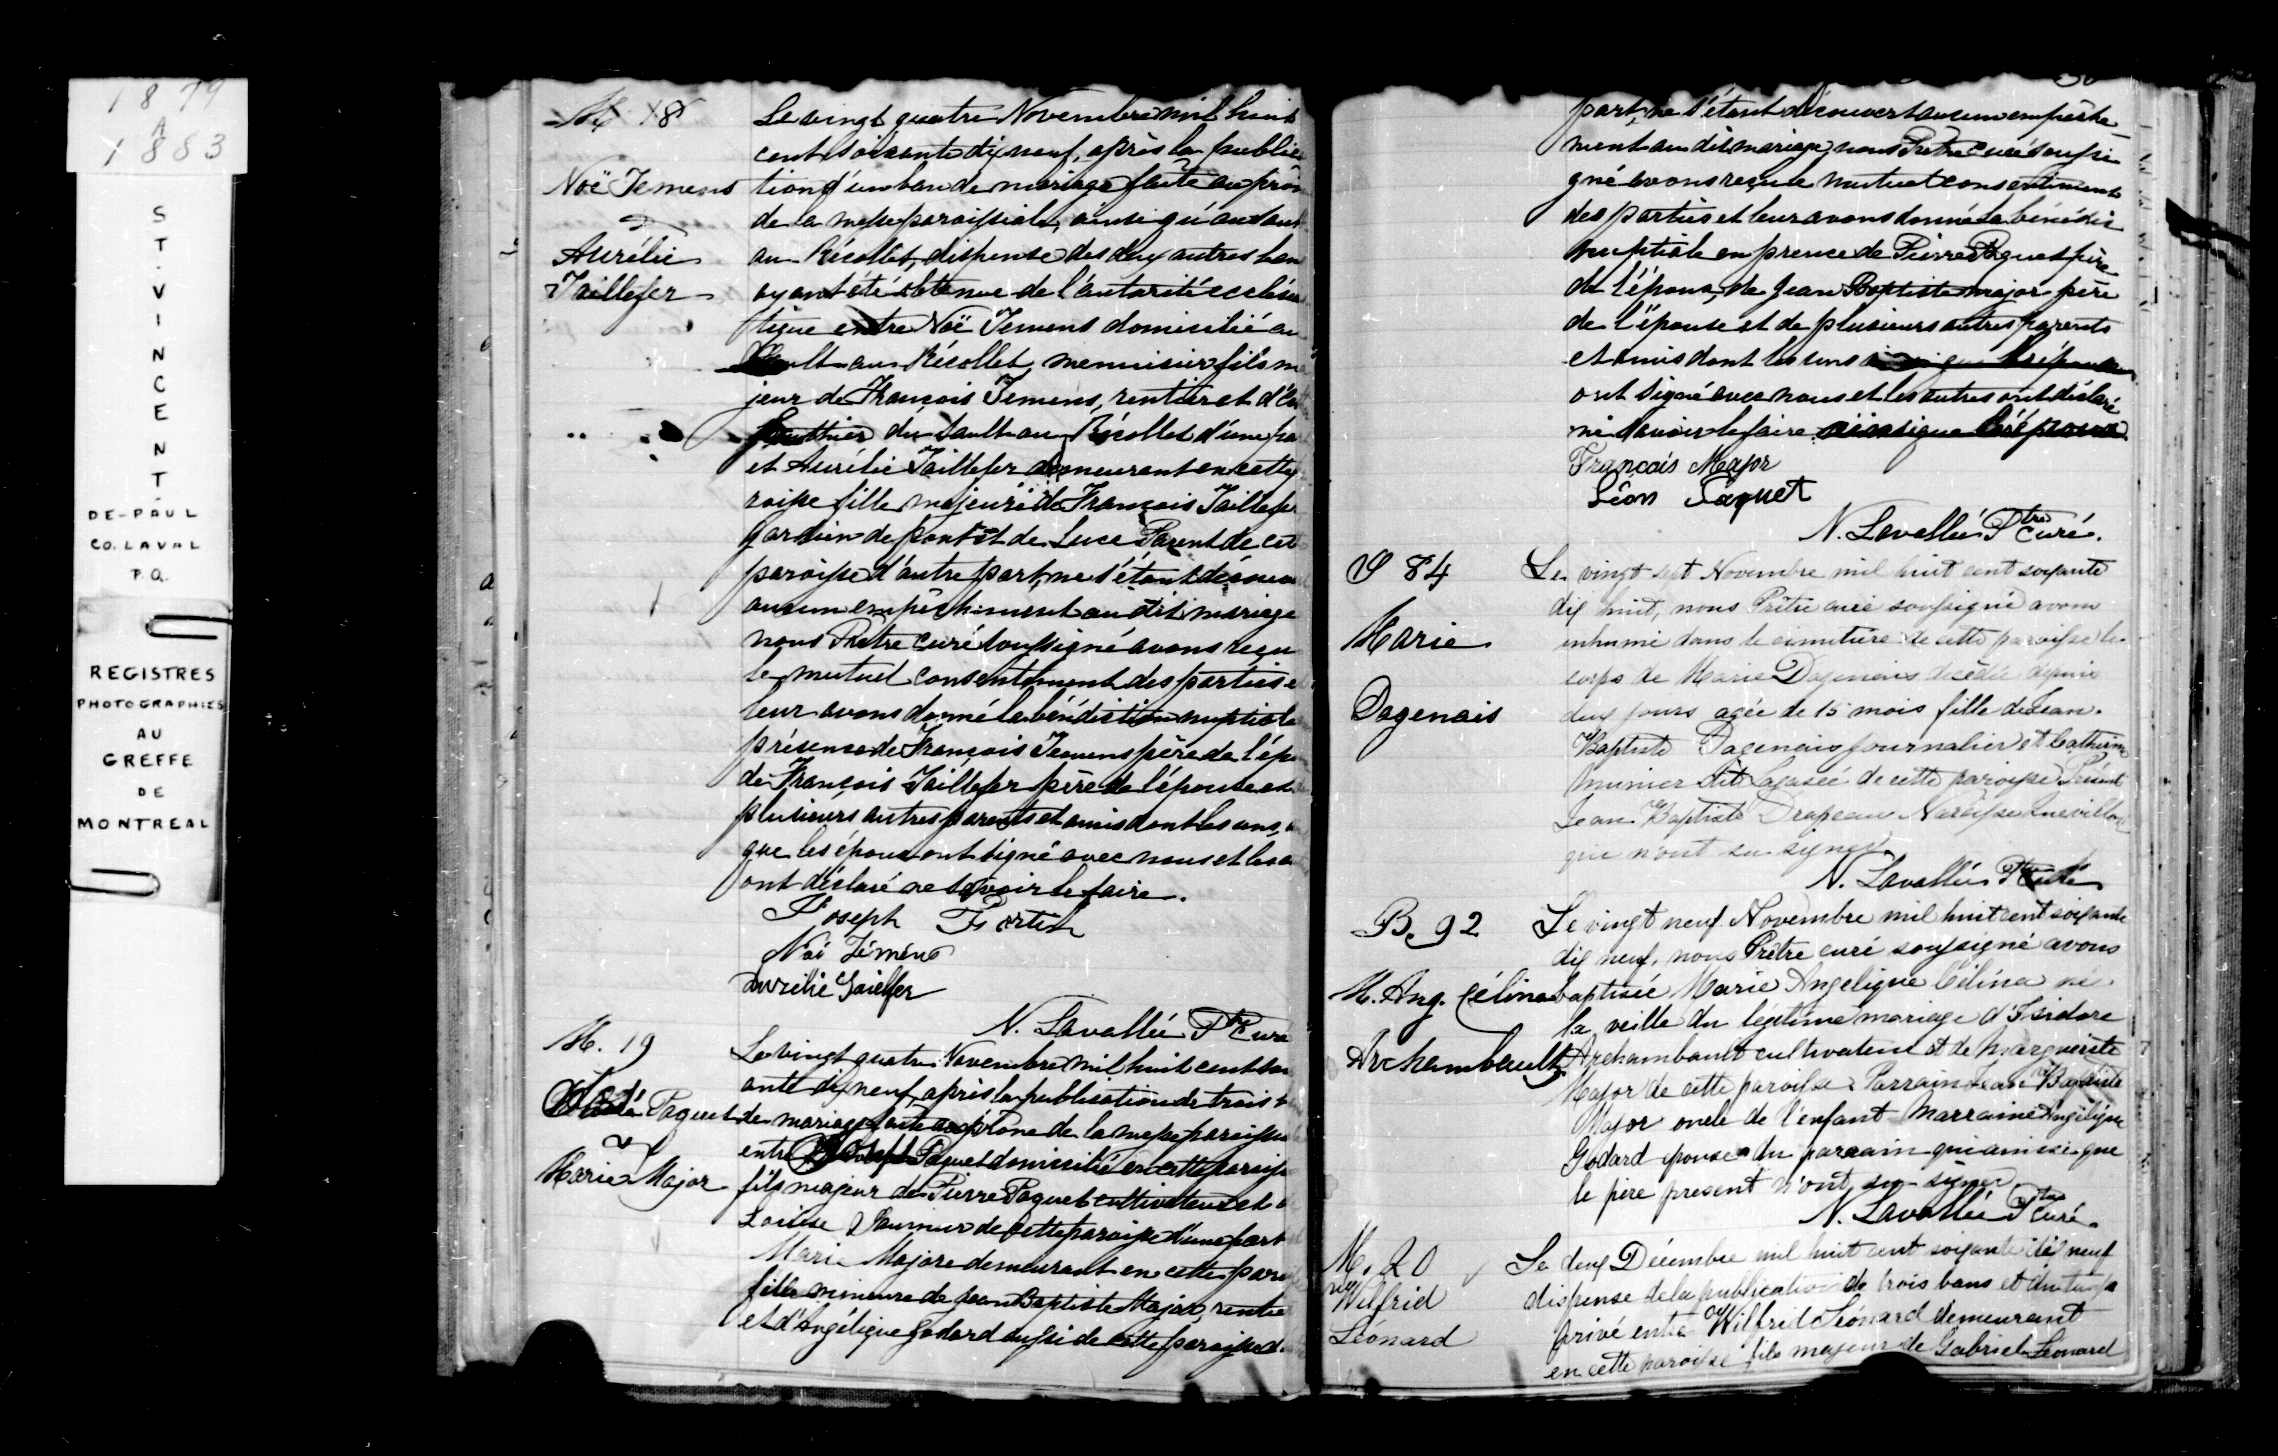 1879
A
1883
ST. VINCENT
DE-PAUL
CO. LAVAL
P.Q.
REGISTRES
PHOTOGRAPHIES
AU
GREFFE
DE
MONTREAL
M 18
Noë Temens
&
Aurélie
Taillefer
Le vingt quatre Novembre mil huit
cent soixante dix neuf, après la publica
tion d'un ban de mariage faite au prône
de la messe paroissiale, ainsi qu'au Sault
au Récollet, dispense des deux autres ban
ayant été obtenue de l'autorité ecclésias
tique entre Noë Temens domicilié au
Sault au Récollet, menuisier, fils ma
jeur de François Temens, rentier et d'
Gauthier du Sault au Récollet d'une par
et Aurélie Taillefer demeurant en cette pa
roisse fille majeure de François Taillefer
gardien de pont et de Luce Parent de cet
paroisse d'autre part, ne s'étant découvert
aucun empêchement au dit mariage
nous Prêtre curé soussigné avons reçu
le mutuel consentement des parties e
leur avons donné la bénédiction nuptiale
présence de François Temens père de l'épo
de François Taillefer père de l'épouse et
plusieurs autres parents et amis dont les uns,
que les époux ont signé avec nous et les a
ont déclaré ne savoir le faire.
Joseph Fortin
Noé Témens
Aurélie Taillefer
N. Lavallée Ptre Curé
M. 19
Paquet
&
Marie Major
Le vingt quatre Novembre mil huit cent soix
ante dix neuf, après la publication de trois b
de mariage faite au prône de la messe paroissia
entre Paquet domicilié en cette paroisse
fils majeur de Pierre Paquet cultivateur et d
Louise Saumur de cette paroisse d'une part
Marie Majore demeurant en cette paroi
fille mineure de Jean Baptiste Major, rentie
et d'Angélique Godard aussi de cette paroisse d.
part, ne s'étant découvert aucun empêche
ment au dit mariage, nous Prêtre curé soussi
gné avons reçu le mutuel consentement
des parties et leur avons donné la bénédic
nuptiale en prence de Pierre Paquet père
de l'époux, de Jean Baptiste Major père
de l'épouse et de plusieurs autres parents
et amis dont les uns
ont signé avec nous et les autres ont déclaré
ne savoir le faire
François Major
Léon Paquet
N. Lavallée Ptre Curé.
S 84
Marie
Dagenais
Le vingt sept Novembre mil huit cent soixante
dix huit, nous Prêtre curé soussigné avons
inhumé dans le cimetière de cette paroisse le
corps de Marie Dagenais décédée depuis
deux jours agée de 15 mois fille de Jean.
Baptiste Dagenais journalier et Catherine
Munier dit Lagacée de cette paroisse Présent
Jean Baptiste Drapeau Narcisse
qui n'ont su signer
N. Lavallée Ptre Curé
B. 92
M. Ang. Célina
Archambault
Le vingt neuf Novembre mil huit cent soixante
dix neuf, nous Prêtre curé soussigné avons
baptisée Marie Angelique Célina né
la veille du légitime mariage d'Isidore
Archambault cultivateur et de Marguerite
Major de cette paroisse Parrain Jean Baptiste
Major oncle de l'enfant Marraine Angélique
Godard épouse du parrain qui ainsi que
le père present n'ont su signer
N. Lavallée Ptre Curé.
M. 20
Wilfrid
Léonard
Le deux Décembre mil huit cent soixante dix neuf
dispense de la publication de trois bans et du temps
privé entre Wilfrid Léonard demeurant
en cette paroisse fils majeur de Gabriel Léonard